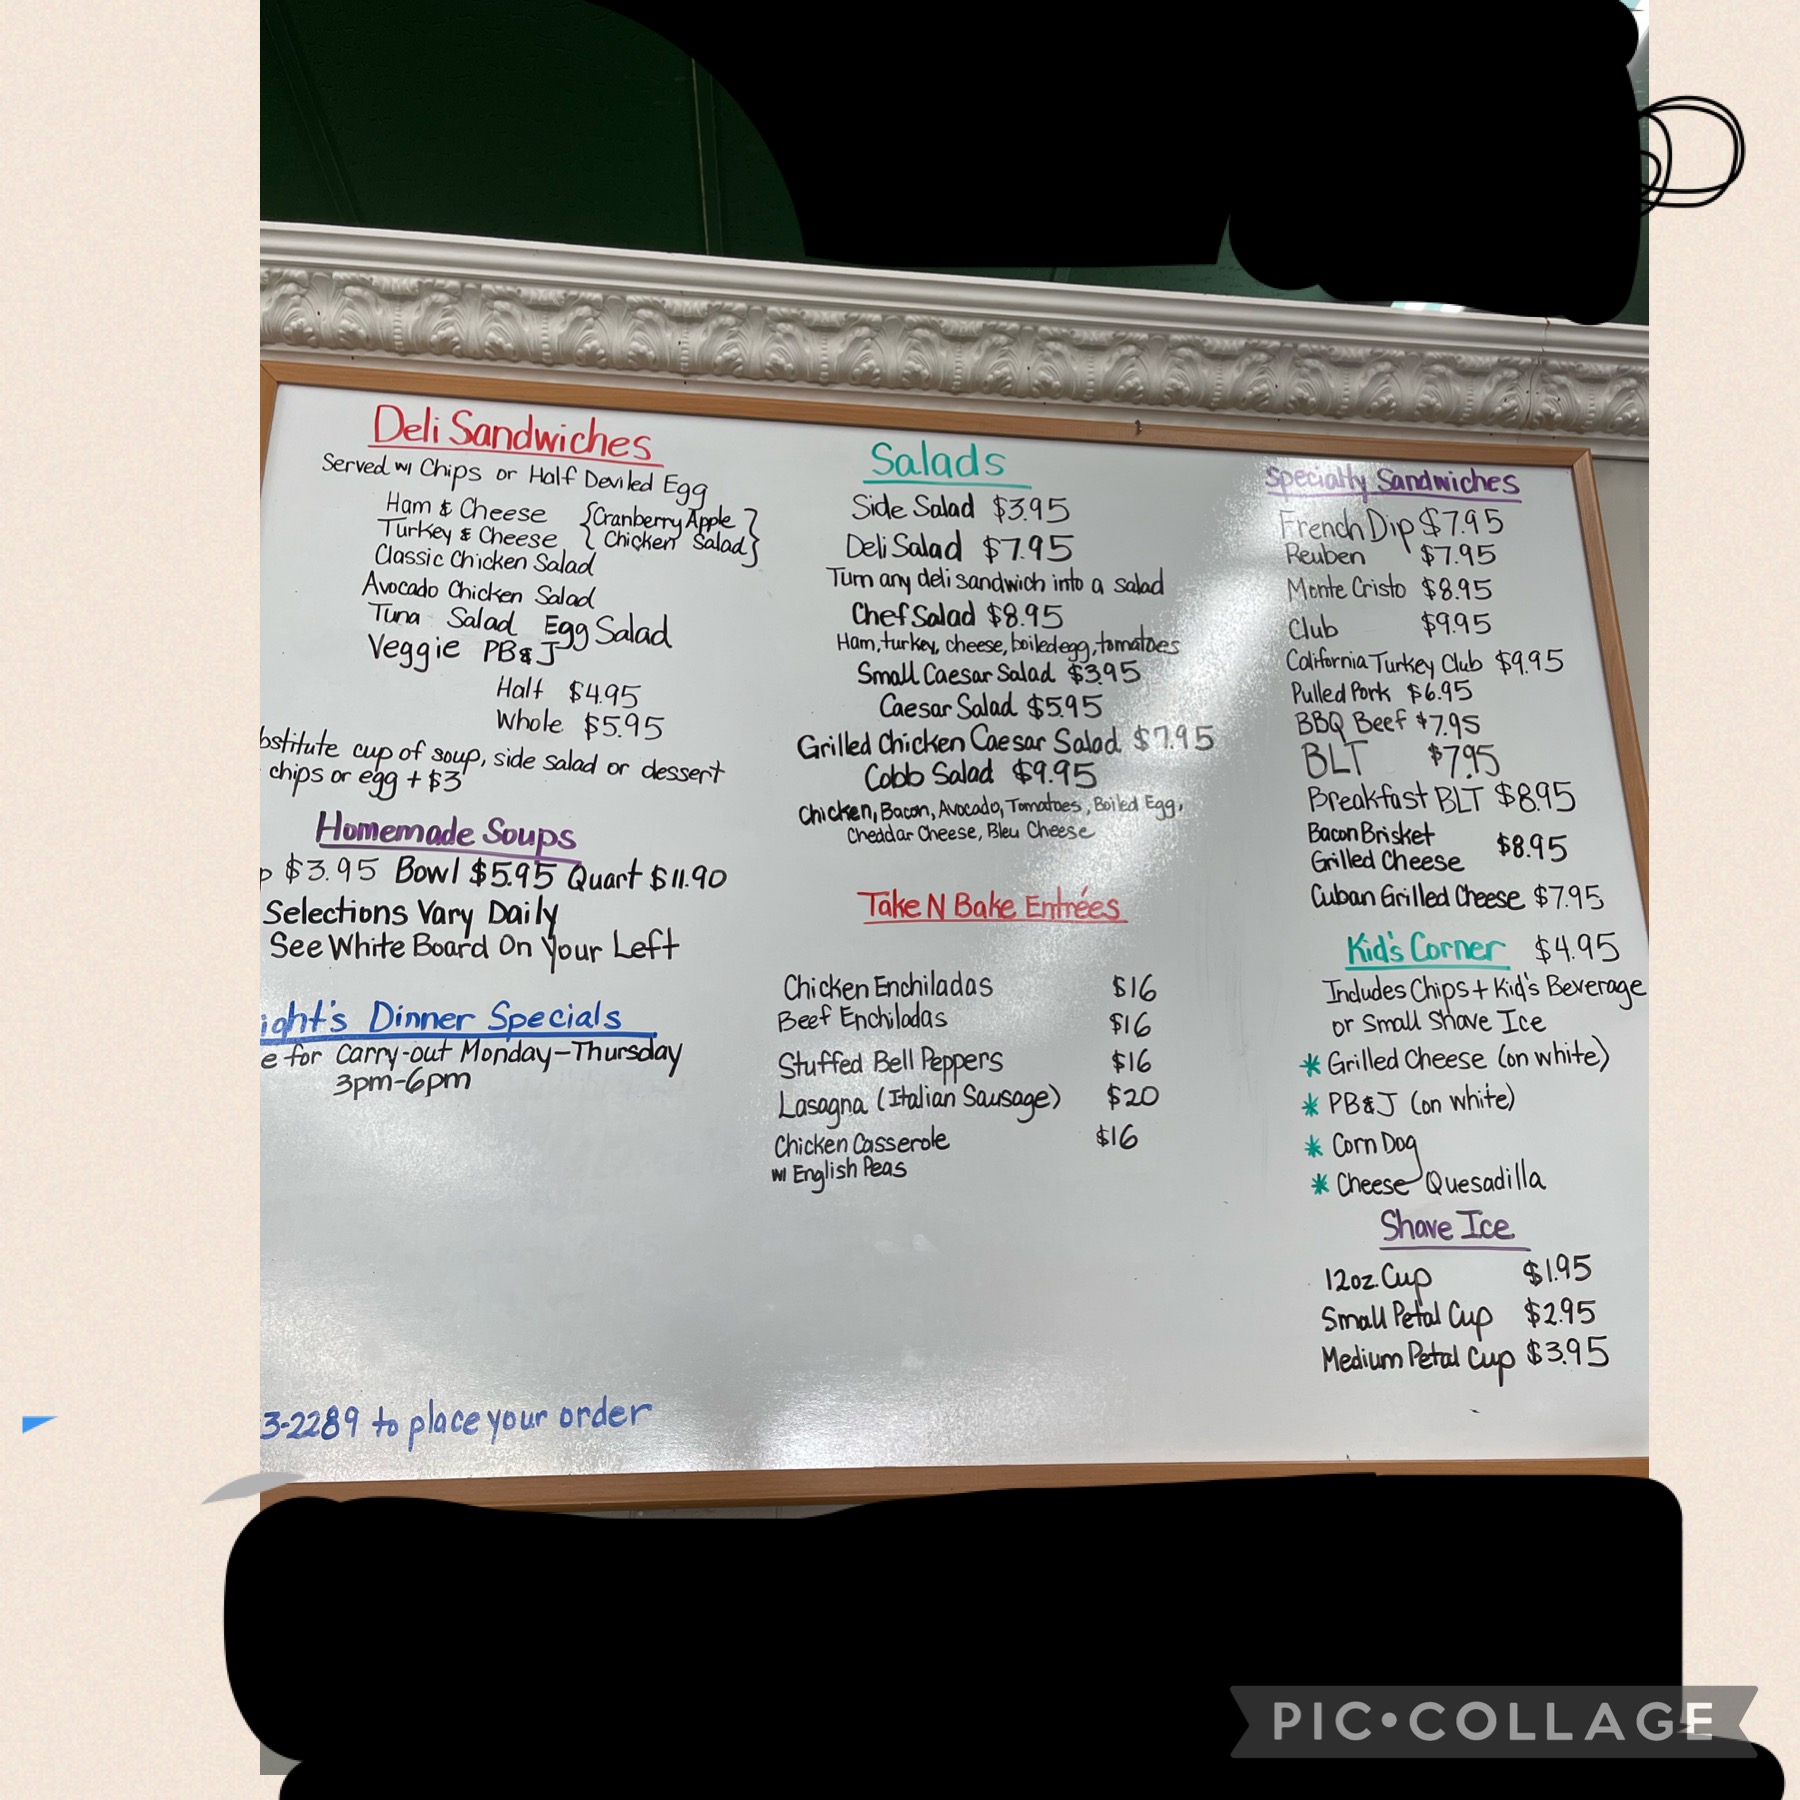 Deli Sandwiches
Served w/ Chips or Half Deviled Egg
Ham & Cheese {Cranberry Apple}
Turkey & Cheese {Chicken Salad}
Classic Chicken Salad
Avocado Chicken Salad
Tuna Salad Egg Salad
Veggie PB&J
Half $4.95
Whole $5.95
bstitute cup of soup, side salad or dessert
chips or egg + $3
Homemade Soups
p $3.95 Bowl $5.95 Quart $11.90
Selections Vary Daily
See White Board On Your Left
ight's Dinner Specials
e for Carry-out Monday-Thursday
3pm-6pm
3-2289 to place your order
Salads
Side Salad $3.95
Deli Salad $7.95
Turn any deli sandwich into a salad
Chef Salad $8.95
Ham, turkey, cheese, boiled egg, tomatoes
Small Caesar Salad $3.95
Caesar Salad $5.95
Grilled Chicken Caesar Salad $7.95
Cobb Salad $9.95
Chicken, Bacon, Avocado, Tomatoes, Boiled Egg,
Cheddar Cheese, Bleu Cheese
Take N Bake Entrées
Chicken Enchiladas $16
Beef Enchiladas $16
Stuffed Bell Peppers $16
Lasagna (Italian Sausage) $20
Chicken Casserole $16
w/ English Peas
Specialty Sandwiches
French Dip $7.95
Reuben $7.95
Monte Cristo $8.95
Club $9.95
California Turkey Club $9.95
Pulled Pork $6.95
BBQ Beef $7.95
BLT $7.95
Breakfast BLT $8.95
Bacon Brisket
Grilled Cheese $8.95
Cuban Grilled Cheese $7.95
Kid's Corner $4.95
Includes Chips + Kid's Beverage
or Small Shave Ice
* Grilled Cheese (on white)
* PB&J (on white)
* Corn Dog
* Cheese Quesadilla
Shave Ice
12oz. Cup $1.95
Small Petal Cup $2.95
Medium Petal Cup $3.95
PIC•COLLAGE